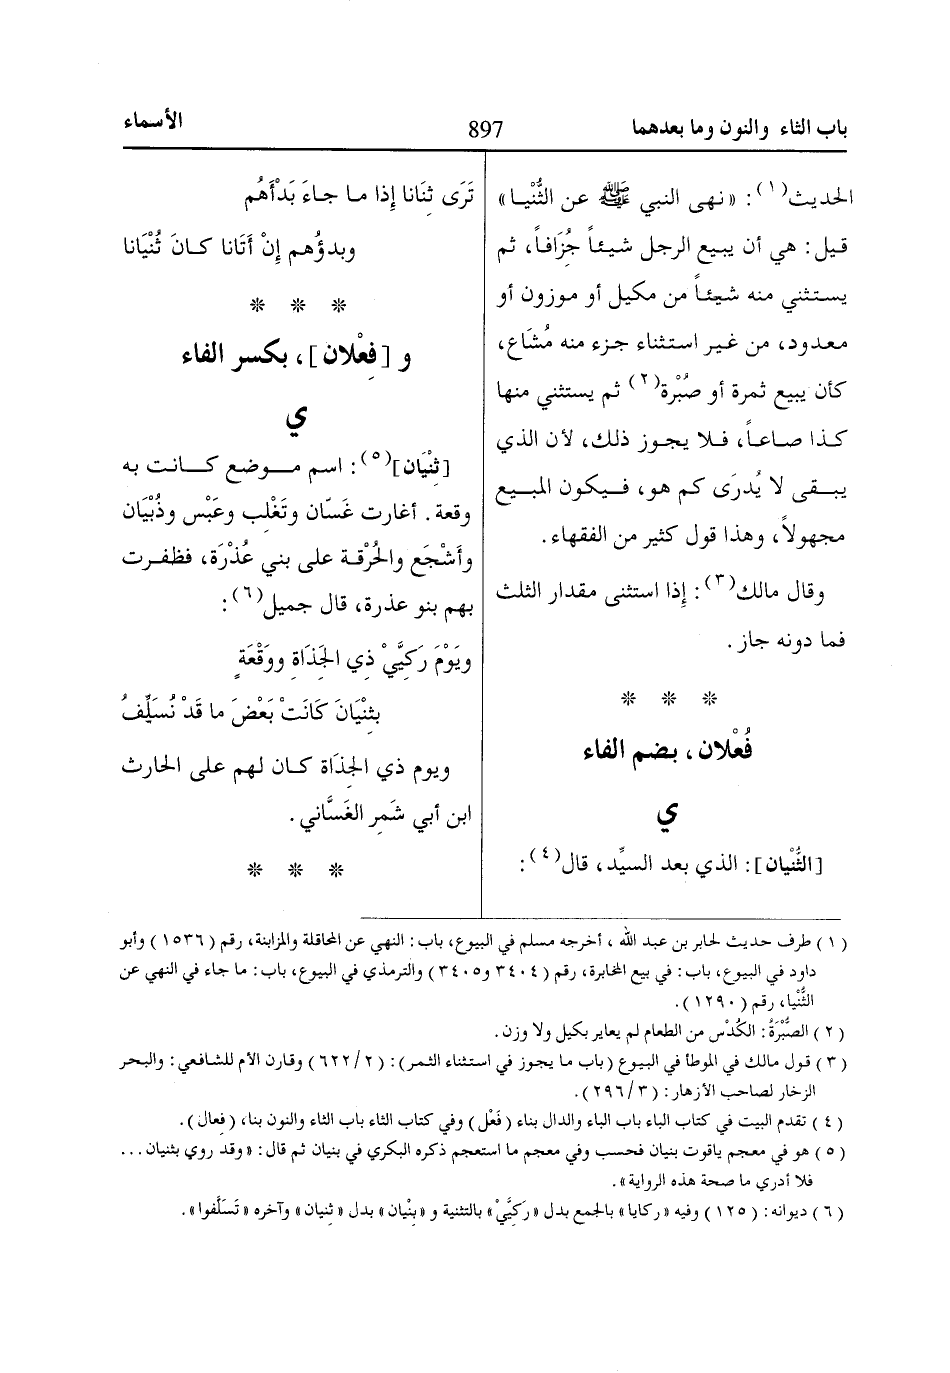 باب الثاء والنون وما بعدهما
897
الأسماء
الحديث(١): «نهى النبي ﷺ عن الثُّنْيا»
قيل: هي أن يبيع الرجل شيئاً جُزَافاً، ثم
يستثني منه شيئاً من مكيل أو موزون أو
معدود، من غير استثناء جزء منه مُشَاع،
كأن يبيع ثمرة أو صُبْرة(٢) ثم يستثني منها
كذا صاعاً، فلا يجوز ذلك، لأن الذي
يبقى لا يُدرَى كم هو، فيكون المبيع
مجهولاً، وهذا قول كثير من الفقهاء.
وقال مالك(٣): إذا استثنى مقدار الثلث
فما دونه جاز.
* * *
فُعْلان، بضم الفاء
ي
[الثُّنْيان]: الذي بعد السيِّد، قال(٤):
تَرَى ثِنَانا إذا ما جاءَ بَدْأَهُم
وبدؤُهم إنْ أتَانا كانَ ثُنْيَانا
* * *
و [فِعْلان]، بكسر الفاء
ي
[ثِنْيَان](٥): اسم موضع كانت به
وقعة. أغارت غَسّان وتَغْلب وعَبْس وذُبْيَان
وأشْجَع والحُرْقة على بني عُذْرَة، فظفرت
بهم بنو عذرة، قال جميل(٦):
ويَوْمَ رَكِيَّيْ ذِي الجَذَاةِ ووَقْعَةٍ
بِثنْيَانَ كَانَتْ بَعْضَ ما قَدْ نُسَلِّفُ
ويوم ذي الجذَاة كان لهم على الحارث
ابن أبي شَمِر الغَسَّاني.
* * *
(١) طرف حديث لجابر بن عبد الله، أخرجه مسلم في البيوع، باب: النهي عن المحاقلة والمزابنة، رقم (١٥٣٦) وأبو
داود في البيوع، باب: في بيع المخابرة، رقم (٣٤٠٤ و٣٤٠٥) والترمذي في البيوع، باب: ما جاء في النهي عن
الثُّنْيا، رقم (١٢٩٠).
(٢) الصُّبْرَةُ: الكُدْس من الطعام لم يعاير بكيل ولا وزن.
(٣) قول مالك في الموطأ في البيوع (باب ما يجوز في استثناء الثمر): (٢/ ٦٢٢) وقارن الأم للشافعي: والبحر
الزخار لصاحب الأزهار: (٣/ ٢٩٦).
(٤) تقدم البيت في كتاب الباء باب الباء والدال بناء (فَعْل) وفي كتاب الثاء باب الثاء والنون بناء (فِعال).
(٥) هو في معجم ياقوت بنيان فحسب وفي معجم ما استعجم ذكره البكري في بنيان ثم قال: «وقد روي بثنيان...
فلا أدري ما صحة هذه الرواية».
(٦) ديوانه: (١٢٥) وفيه «ركايا» بالجمع بدل «ركِيَّيْ» بالتثنية و«بِنْيان» بدل «ثِنيان» وآخره «تَسَلَّفوا».